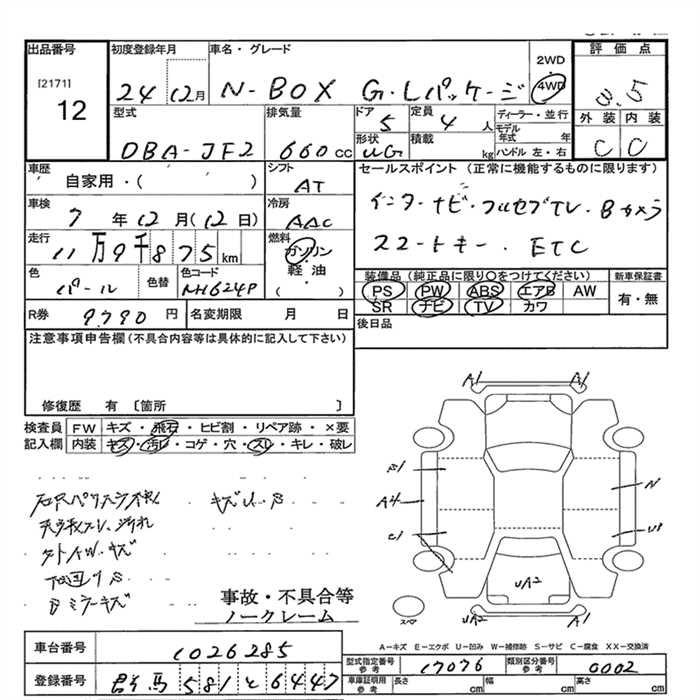 出品番号 初度登録年月 車名・グレード 評価点
[2171] 12
24 12月 N-BOX G・Lパッケージ 2WD 4WD 3.5
型式 排気量 ドア 定員 ディーラー・並行 外装 内装
DBA-JF2 660cc 5 4人 モデル年式 年 C C
形状 積載 kg ハンドル 左・右
UG
車歴 自家用・( ) シフト AT セールスポイント (正常に機能するものに限ります)
車検 7年12月(12日) 冷房 AAC インターナビ・フルセグTV・Bカメラ
走行 11万9千875km 燃料 ガソリン 軽油 ( ) スマートキー・ETC
色 パール 色替 色コード NH624P
装備品 (純正品に限り○をつけてください) 新車保証書
PS PW ABS エアB AW 有・無
SR ナビ TV カワ
R券 9,790円 名変期限 月 日 後日品
注意事項申告欄 (不具合内容等は具体的に記入して下さい)
修復歴 有 〔箇所 〕
検査員 FW キズ・飛石・ヒビ割・リペア跡・×要
記入欄 内装 キズ・汚レ・コゲ・穴・スレ・キレ・破レ
A1 A1
A4 N
C1
UA2
UA2 A1
スペア
下回りS
Bミラーキズ
事故・不具合等
ノークレーム
A-キズ E-エクボ U-凹み W-補修跡 S-サビ C-腐食 XX-交換済
車台番号 1026285
型式指定番号 参考 17076 類別区分番号 参考 0002
登録番号 群馬 581 と 6447
車庫証明用 参考 長さ cm 幅 cm 高さ cm